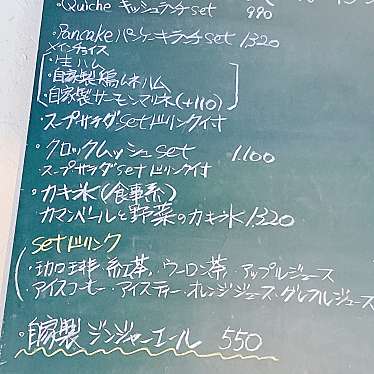 ・Quiche キッシュランチset 990
・Pancake パンケーキランチset 1320
メインチョイス
・生ハム
・自家製鶏ムネハム
・自家製サーモンマリネ(+110)
・スープサラダsetドリンク付
・クロックムッシュset 1.100
・スープサラダsetドリンク付
・カキ氷(食事系)
カマンベールと野菜のカキ氷 1320
setドリンク
・珈琲・紅茶・ウーロン茶・アップルジュース
アイスコーヒー・アイスティー・オレンジジュース・グレフルジュース
・自家製ジンジャーエール 550